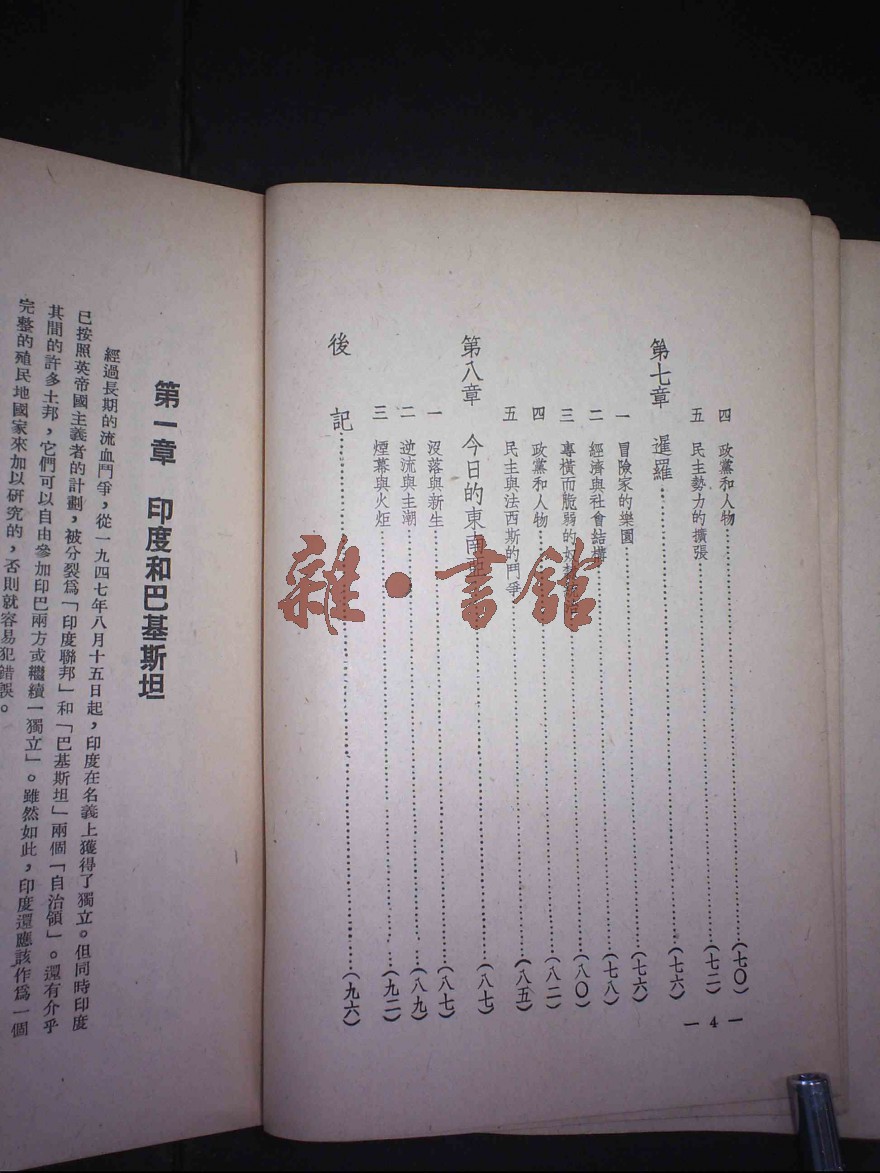 四 政黨和人物……(七〇)
五 民主勢力的擴張……(七二)
第七章 暹羅……(七六)
一 冒險家的樂園……(七六)
二 經濟與社會結構……(七八)
三 專橫而脆弱的……(八〇)
四 政黨和人物……(八二)
五 民主與法西斯的鬥爭……(八五)
第八章 今日的東南亞……(八七)
一 沒落與新生……(八七)
二 逆流與主潮……(八九)
三 煙幕與火炬……(九二)
後 記……(九六)
— 4 —
雜·書館
第一章 印度和巴基斯坦
經過長期的流血鬥爭,從一九四七年八月十五日起,印度在名義上獲得了獨立。但同時印度
已按照英帝國主義者的計劃,被分裂爲「印度聯邦」和「巴基斯坦」兩個「自治領」。還有介乎
其間的許多土邦,它們可以自由參加印巴兩方或繼續「獨立」。雖然如此,印度還應該作爲一個
完整的殖民地國家來加以研究的,否則就容易犯錯誤。